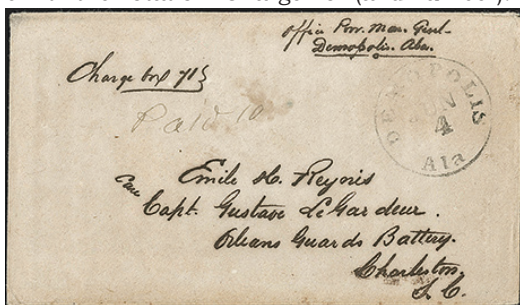 Office Pro. Mar. Genl.
Demopolis. Ala.
Charge box 715
Paid 10
DEMOPOLIS
JUN
4
Ala
Emile H. Reynis
Care
Capt. Gustave LeGardeur.
Orleans Guards Battery.
Charleston.
S. C.